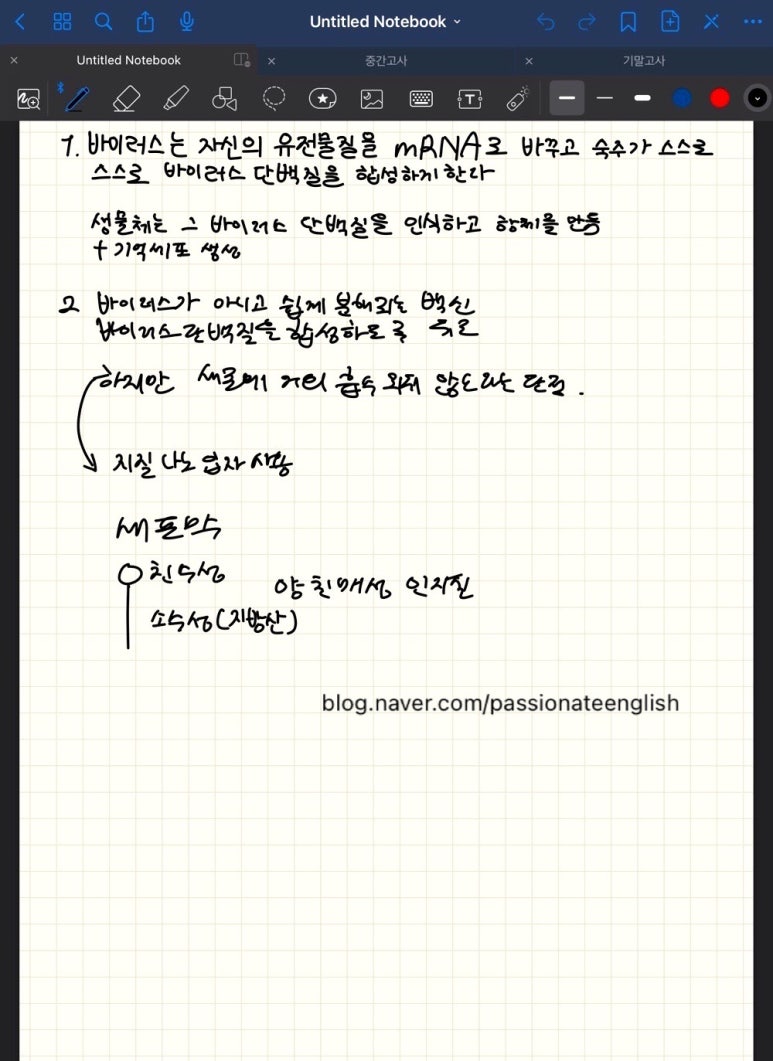 Untitled Notebook
Untitled Notebook
중간고사
기말고사
1. 바이러스는 자신의 유전물질을 mRNA로 바꾸고 숙주가 스스로
스스로 바이러스 단백질을 합성하게 한다
생물체는 그 바이러스 단백질을 인식하고 항체를 만듦
+ 기억세포 생성
2 바이러스가 아니고 쉽게 분해되는 백신
바이러스단백질을 합성하도록 유도
하지만 세포에 거의 흡수 되지 않는다는 단점.
지질 나노 입자 사용
세포막
친수성
양친매성 인지질
소수성(지방산)
blog.naver.com/passionateenglish